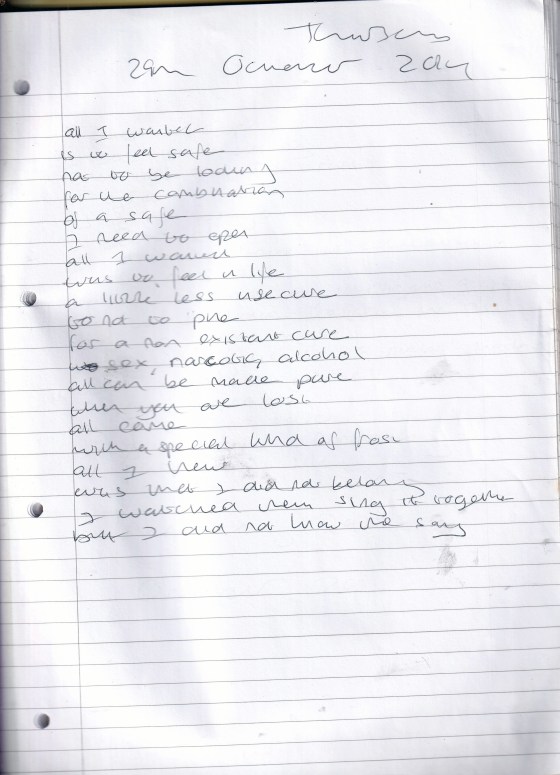 Thursday
29th October 2014
all I wanted
is to feel safe
not to be looking
for the combination
of a safe
I need to open
all I wanted
was to feel in life
a little less insecure
to not to pine
for a non existant cure
sex, narcotic, alcohol
all can be made pure
when you are lost
all came
with a special kind of frost
all I knew
was that I did not belong
I watched them sing it together
but I did not know the song